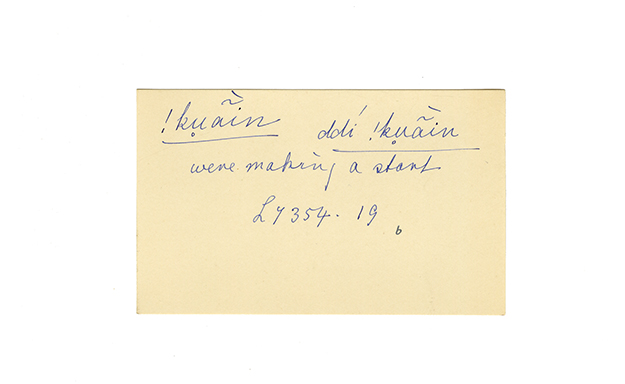 !kụãin ddí !kụãin
were making a start
L 7354. 19
b